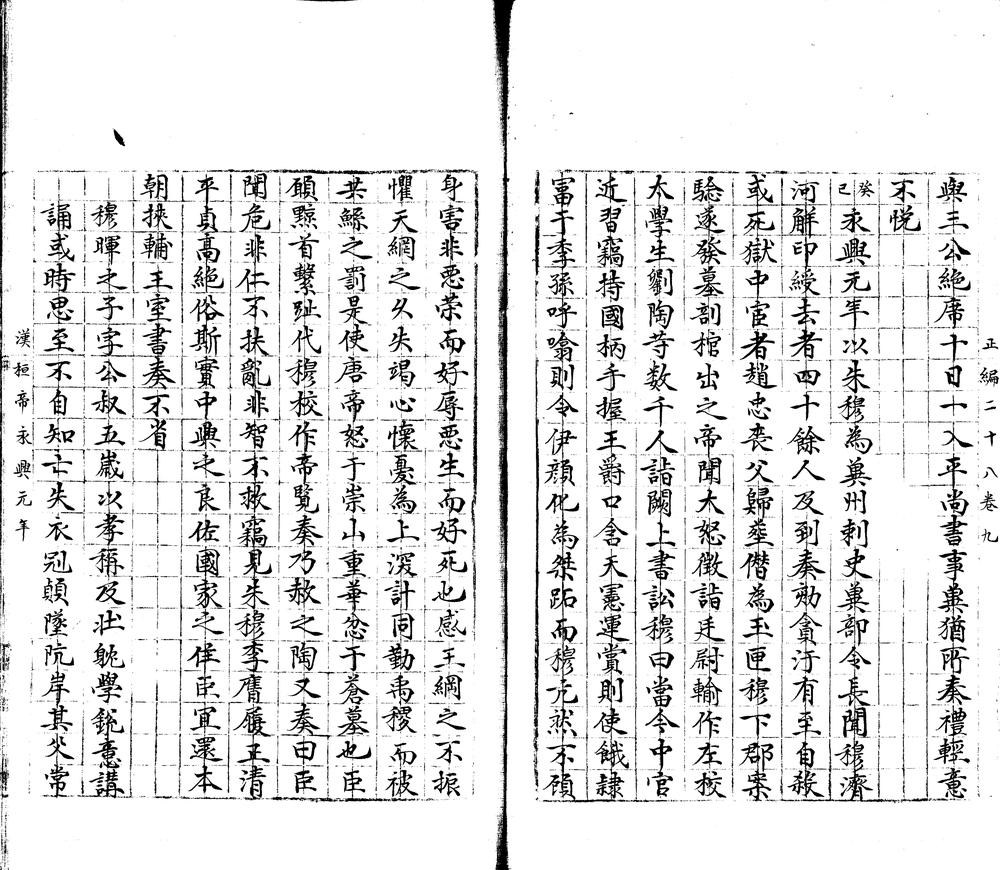 正編二十八卷九
與三公絶席十日一入平尚書事冀猶所奏禮輕意
不悅
癸巳永興元年以朱穆為冀州刺史冀部令長聞穆濟
河解印綬去者四十餘人及到奏劾貪汙有至自殺
或死獄中宦者趙忠喪父歸葬僭為玉匣穆下郡案
驗遂發墓剖棺出之帝聞大怒徵詣廷尉輸作左校
太學生劉陶等数千人詣闕上書訟穆曰當今中官
近習竊持國柄手握王爵口含天憲運賞則使餓隷
富于季孫呼噏則令伊顔化為桀跖而穆亢然不顧
身害非惡荣而好辱惡生而好死也感王綱之不振
懼天網之久失竭心懷憂為上深計同勤禹稷而被
共鯀之罰是使唐帝怒于崇山重華忿于蒼墓也臣
願黥首繫趾代穆校作帝覧奏乃赦之陶又奏曰臣
聞危非仁不扶亂非智不救竊見朱穆李膺履正清
平貞高絶俗斯實中興之良佐國家之佳臣宜還本
朝挾輔王室書奏不省
穆暉之子字公叔五歲以孝稱及壯躭學鋭意講
誦或時思至不自知亡失衣冠顛墜阬岸其父常
漢桓帝永興元年